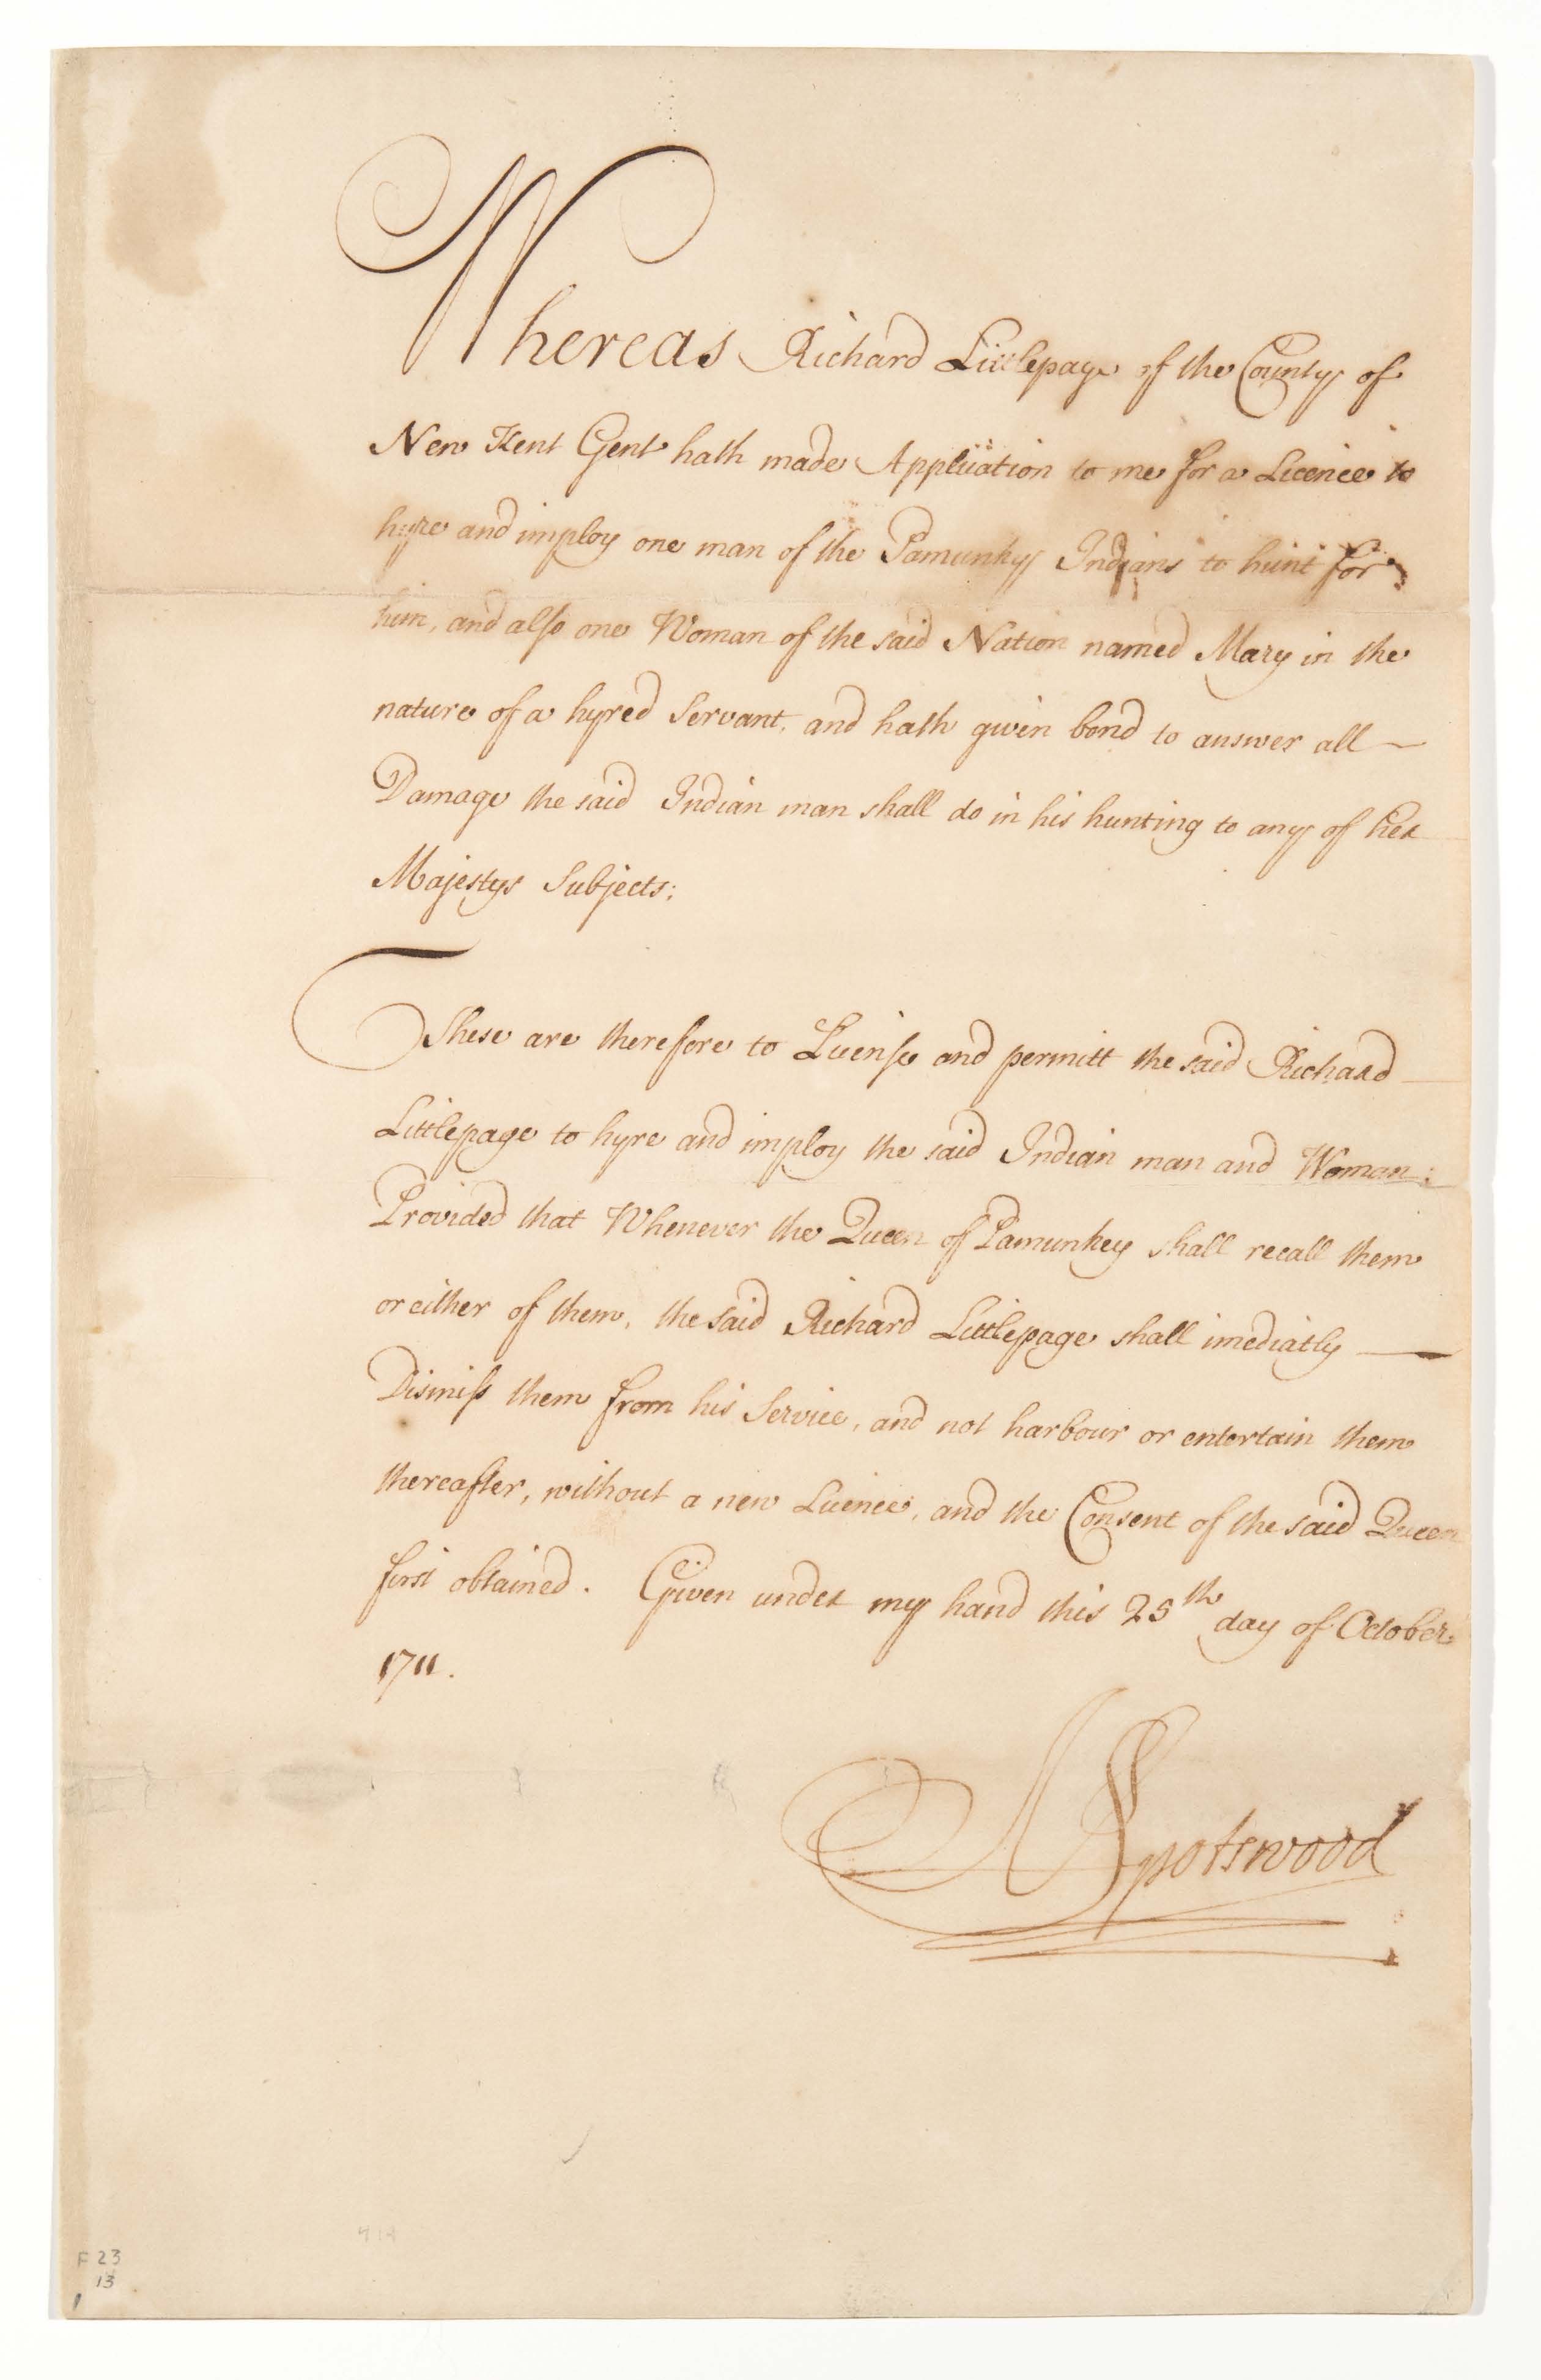 Whereas Richard Littlepage of the County of
New Kent Gent hath made Application to me for a Licence to
hyre and imploy one man of the Pamunky Indians to hunt for
him, and also one Woman of the said Nation named Mary in the
nature of a hyred Servant, and hath given bond to answer all —
Damage the said Indian man shall do in his hunting to any of her
Majestys Subjects;
These are therefore to License and permitt the said Richard
Littlepage to hyre and imploy the said Indian man and Woman;
Provided that Whenever the Queen of Pamunkey shall recall them
or either of them, the said Richard Littlepage shall imediatly —
Dismiss them from his Service, and not harbour or entertain them
thereafter, without a new Licence, and the Consent of the said Queen
first obtained. Given under my hand this 25th day of October
1711.
A Spotswood
F 23
13